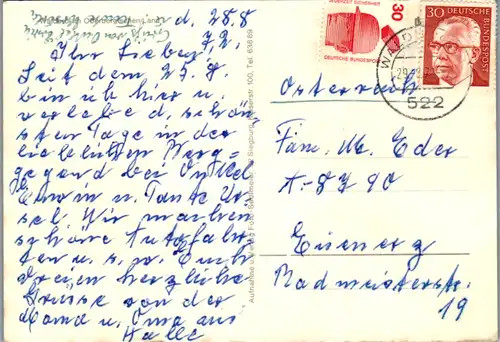 d. 28.8
72.
Ihr Lieben,
Seit dem 25. 8.
bin ich hier u.
verlebe d. schön-
sten Tage in der
lieblichen Berg-
gegend bei Onkel
Erwin u. Tante Ur-
sel. Wir machen
schöne Autofahr-
ten u. s. w. Euch
Dreien herzliche
Grüsse von der
Mama u. Oma aus
Halle
Aufnahme und Verlag Foto
Siegburg
100, Tel. 638 89
30
DEUTSCHE BUNDESPOST
30
DEUTSCHE BUNDESPOST
WALD
522
Österreich
Fam. M. Eder
A-8790
Eisenerz
Radmeisterstr.
19